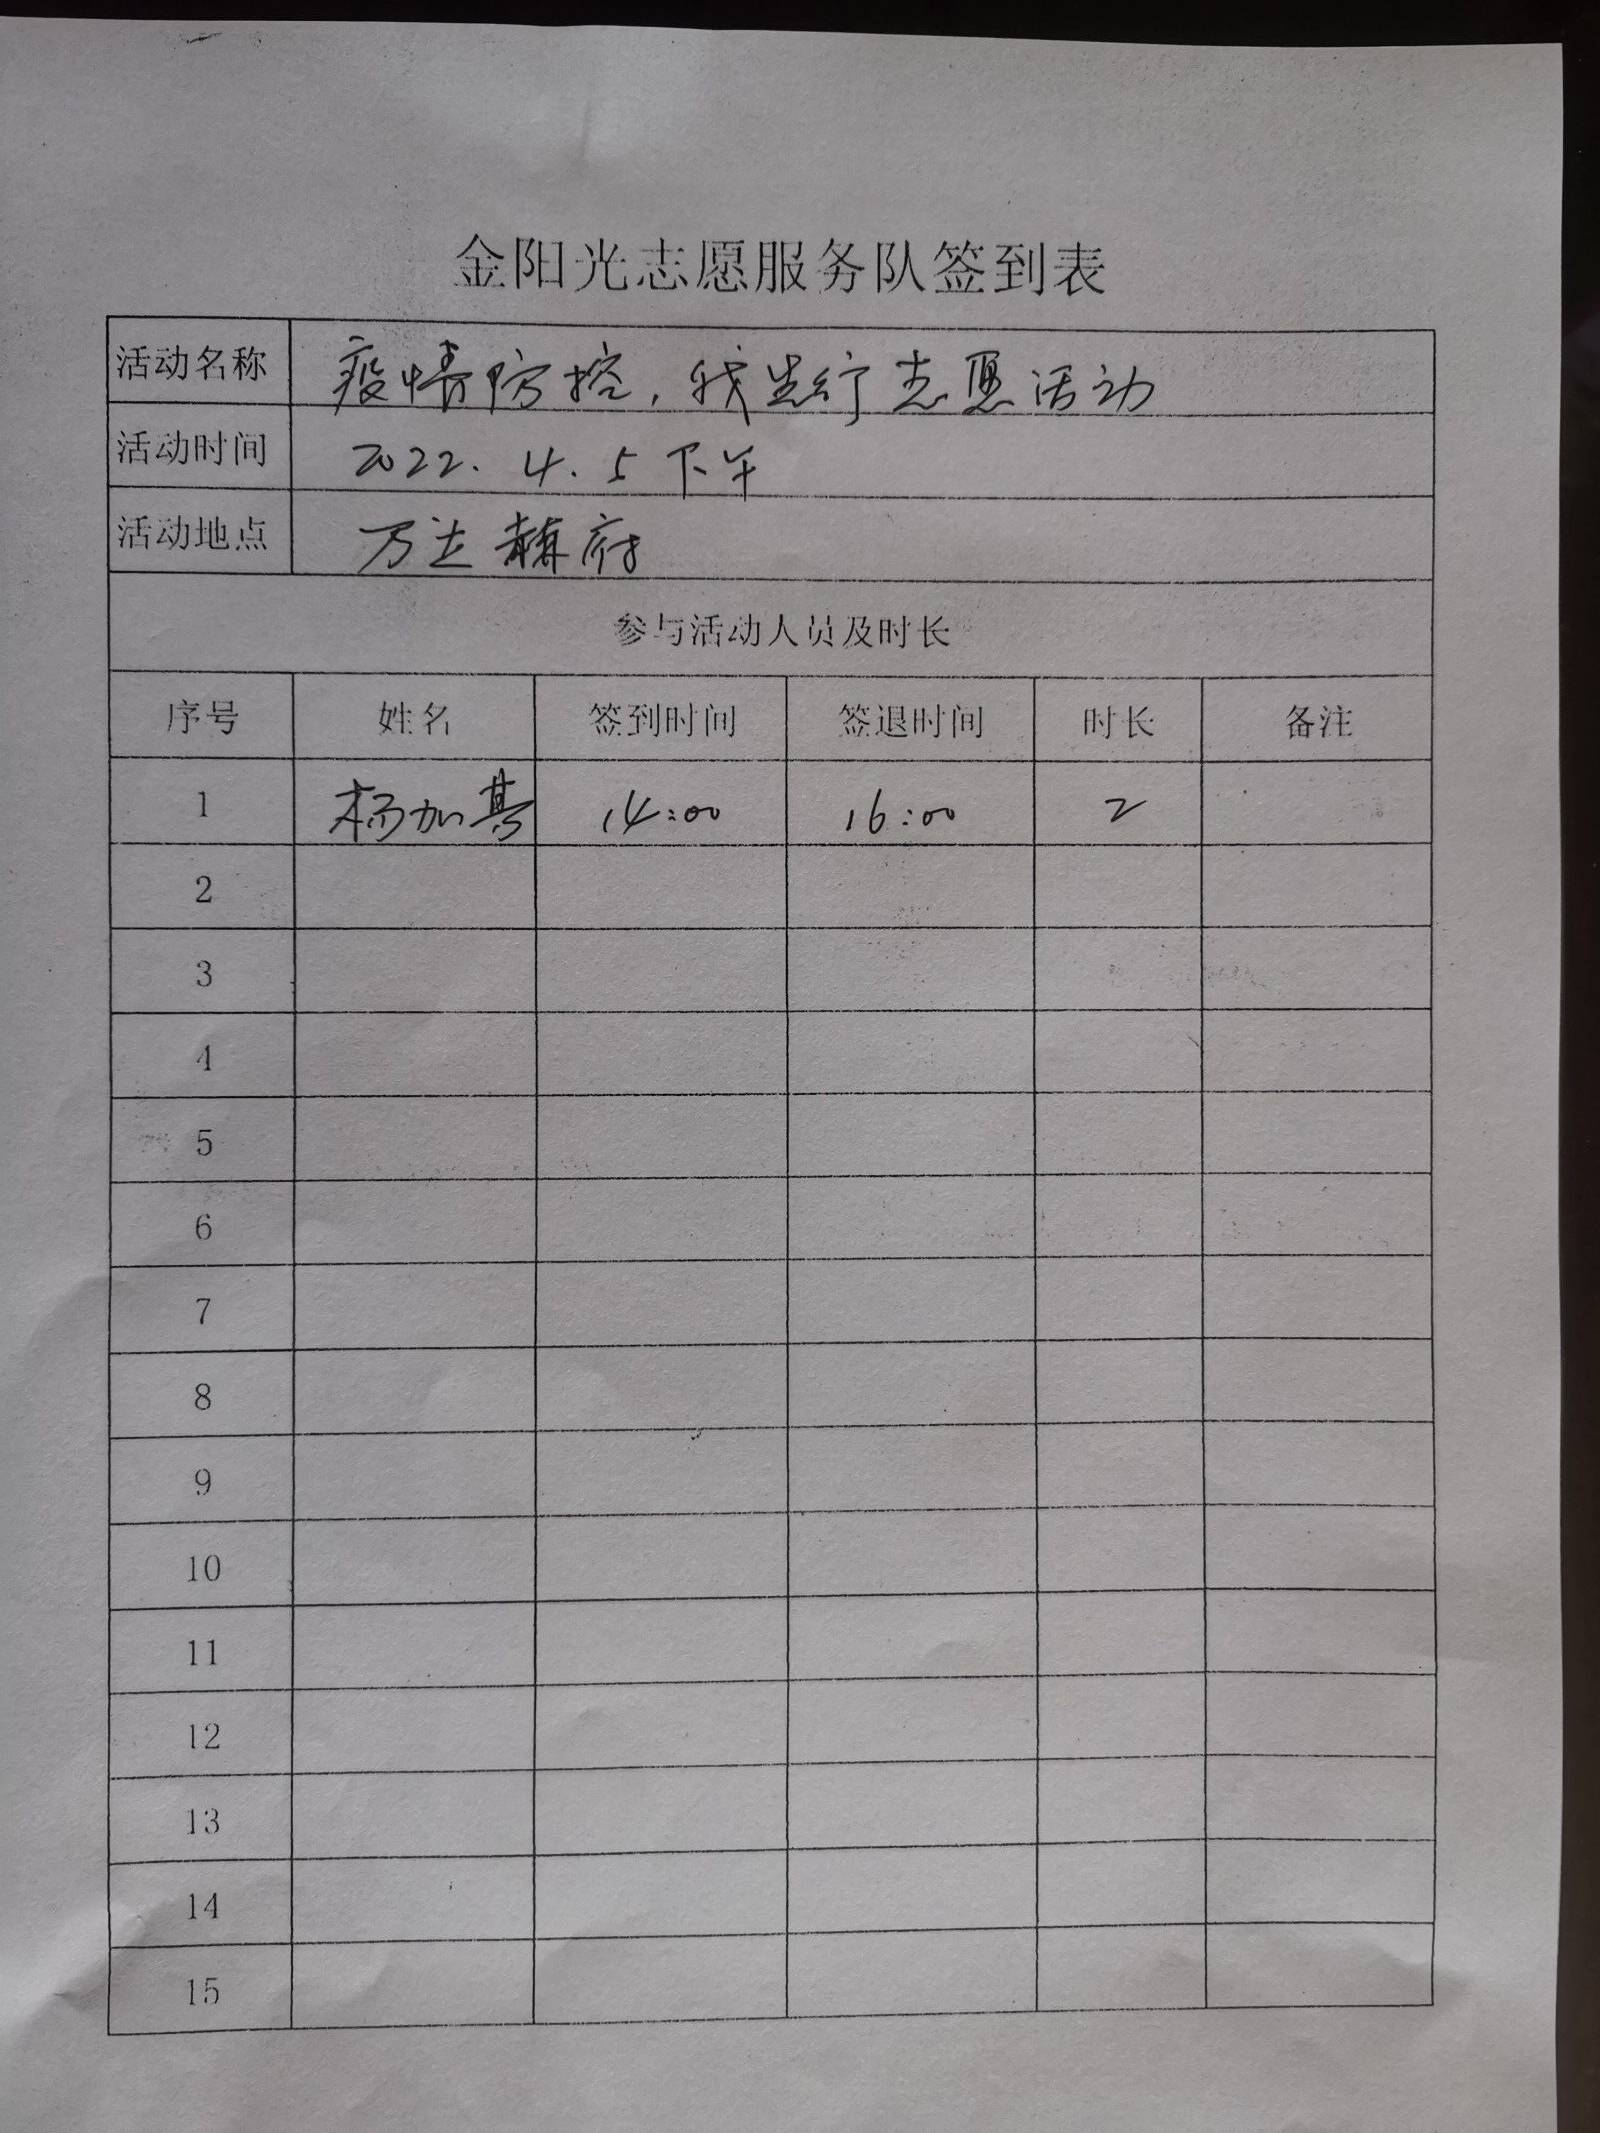 金阳光志愿服务队签到表
活动名称 疫情防控，我先行志愿活动
活动时间 2022.4.5下午
活动地点 万达 府
参与活动人员及时长
序号 姓名 签到时间 签退时间 时长 备注
1 杨加基 14:00 16:00 2
2
3
4
5
6
7
8
9
10
11
12
13
14
15